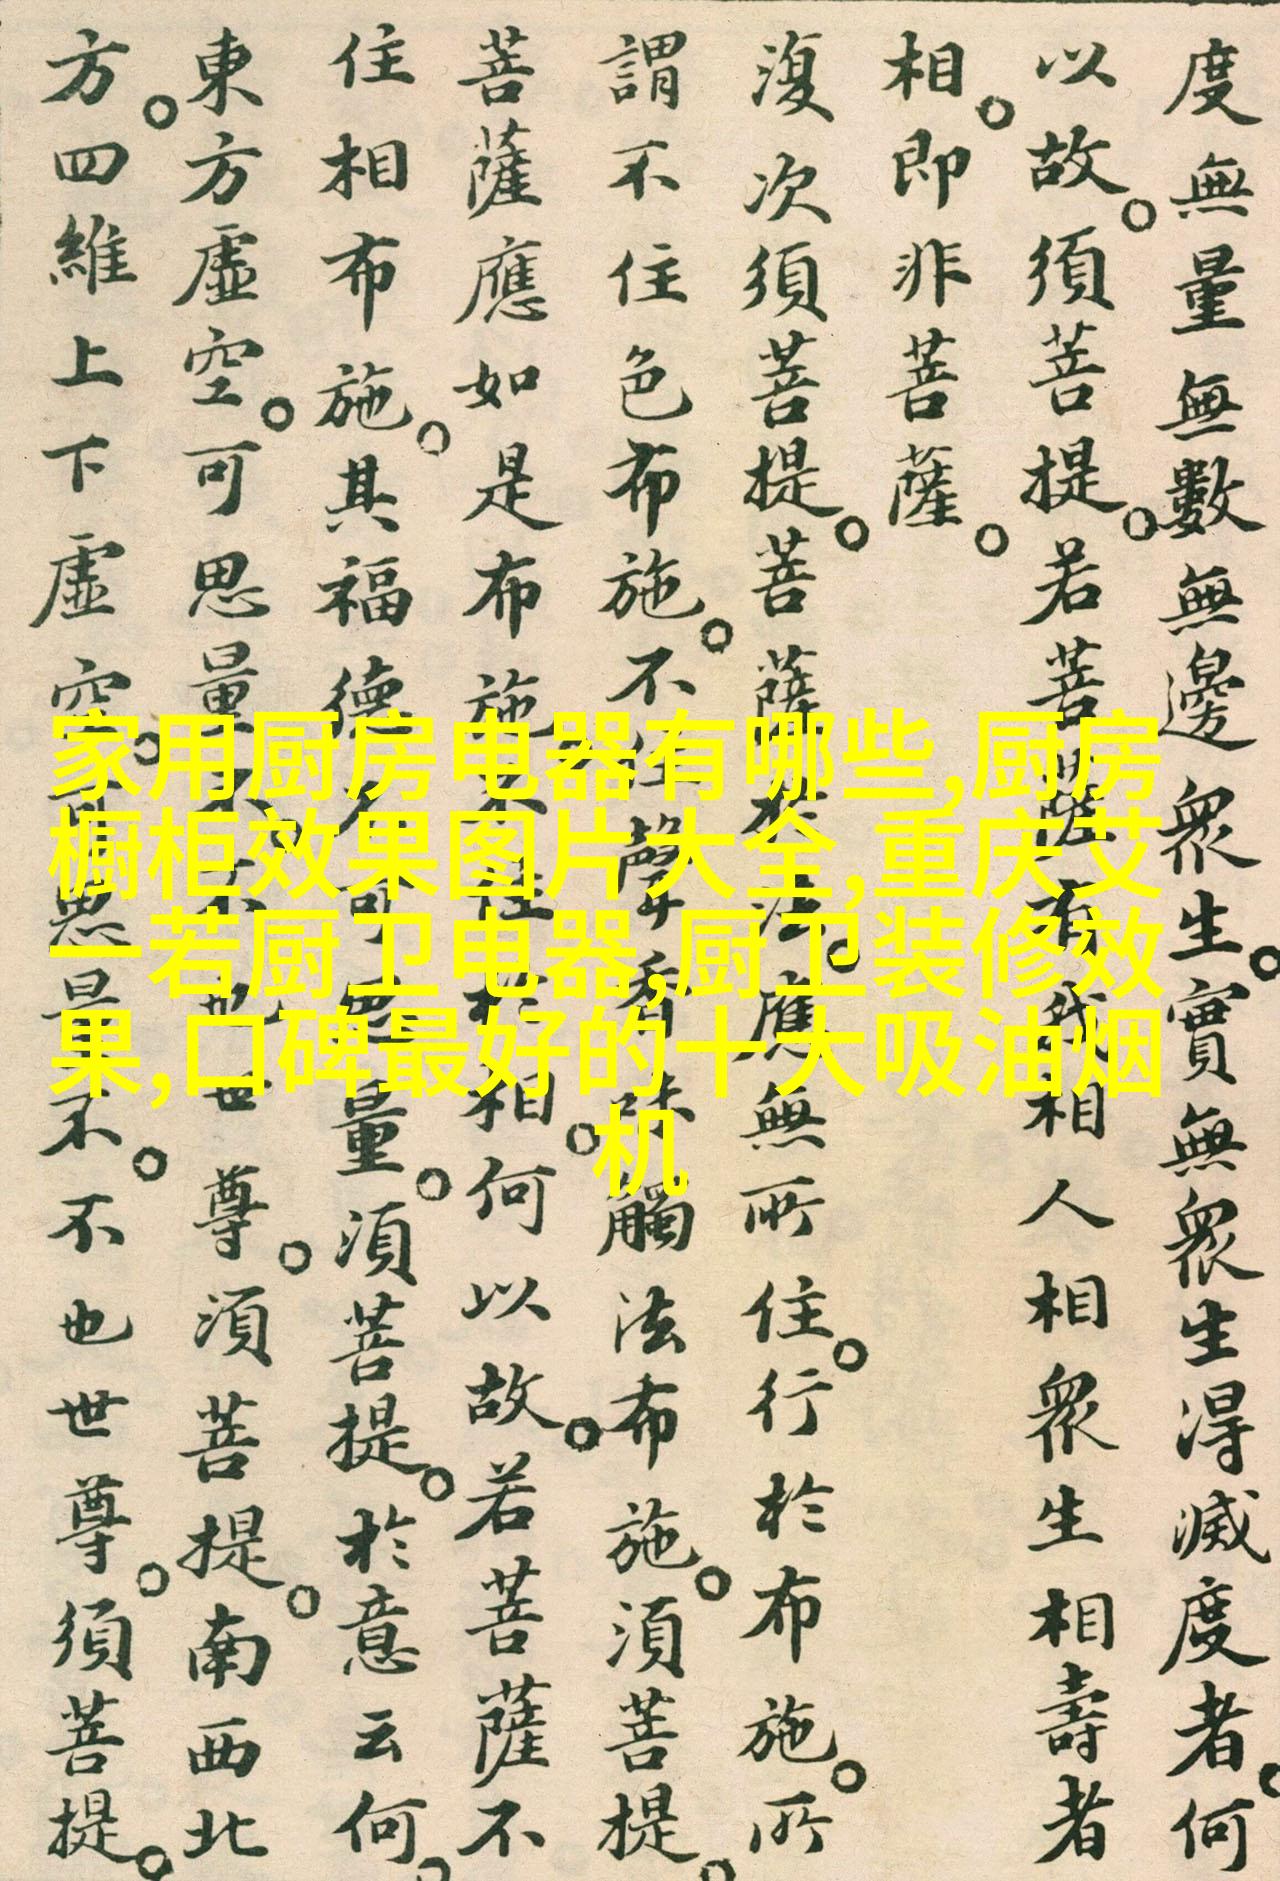 度無量無數無邊眾生。實無眾生得滅度者。何
以故。須菩提。若菩薩有我相人相眾生相壽者
相。即非菩薩。
復次須菩提。菩薩於法。應無所住。行於布施。所
謂不住色布施。不住聲香味觸法布施。須菩提。
菩薩應如是布施不住於相。何以故。若菩薩不
住相布施。其福德不可思量。須菩提。於意云何。
東方虛空。可思量不。不也世尊。須菩提。南西北
方。四維上下虛空。可思量不。不也世尊。須菩提。
家用厨房电器有哪些,厨房
橱柜效果图片大全,重庆艾
一若厨卫电器,厨卫装修效
果,口碑最好的十大吸油烟
机